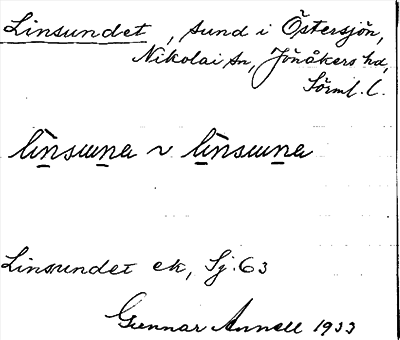 Linsundet, sund i Östersjön,
Nikolai sn, Jönåkers hd,
Sörml. l.
lìnsuna ~ lìnsuna
Linsundet ek, Sj. 63
Gunnar Annell 1933